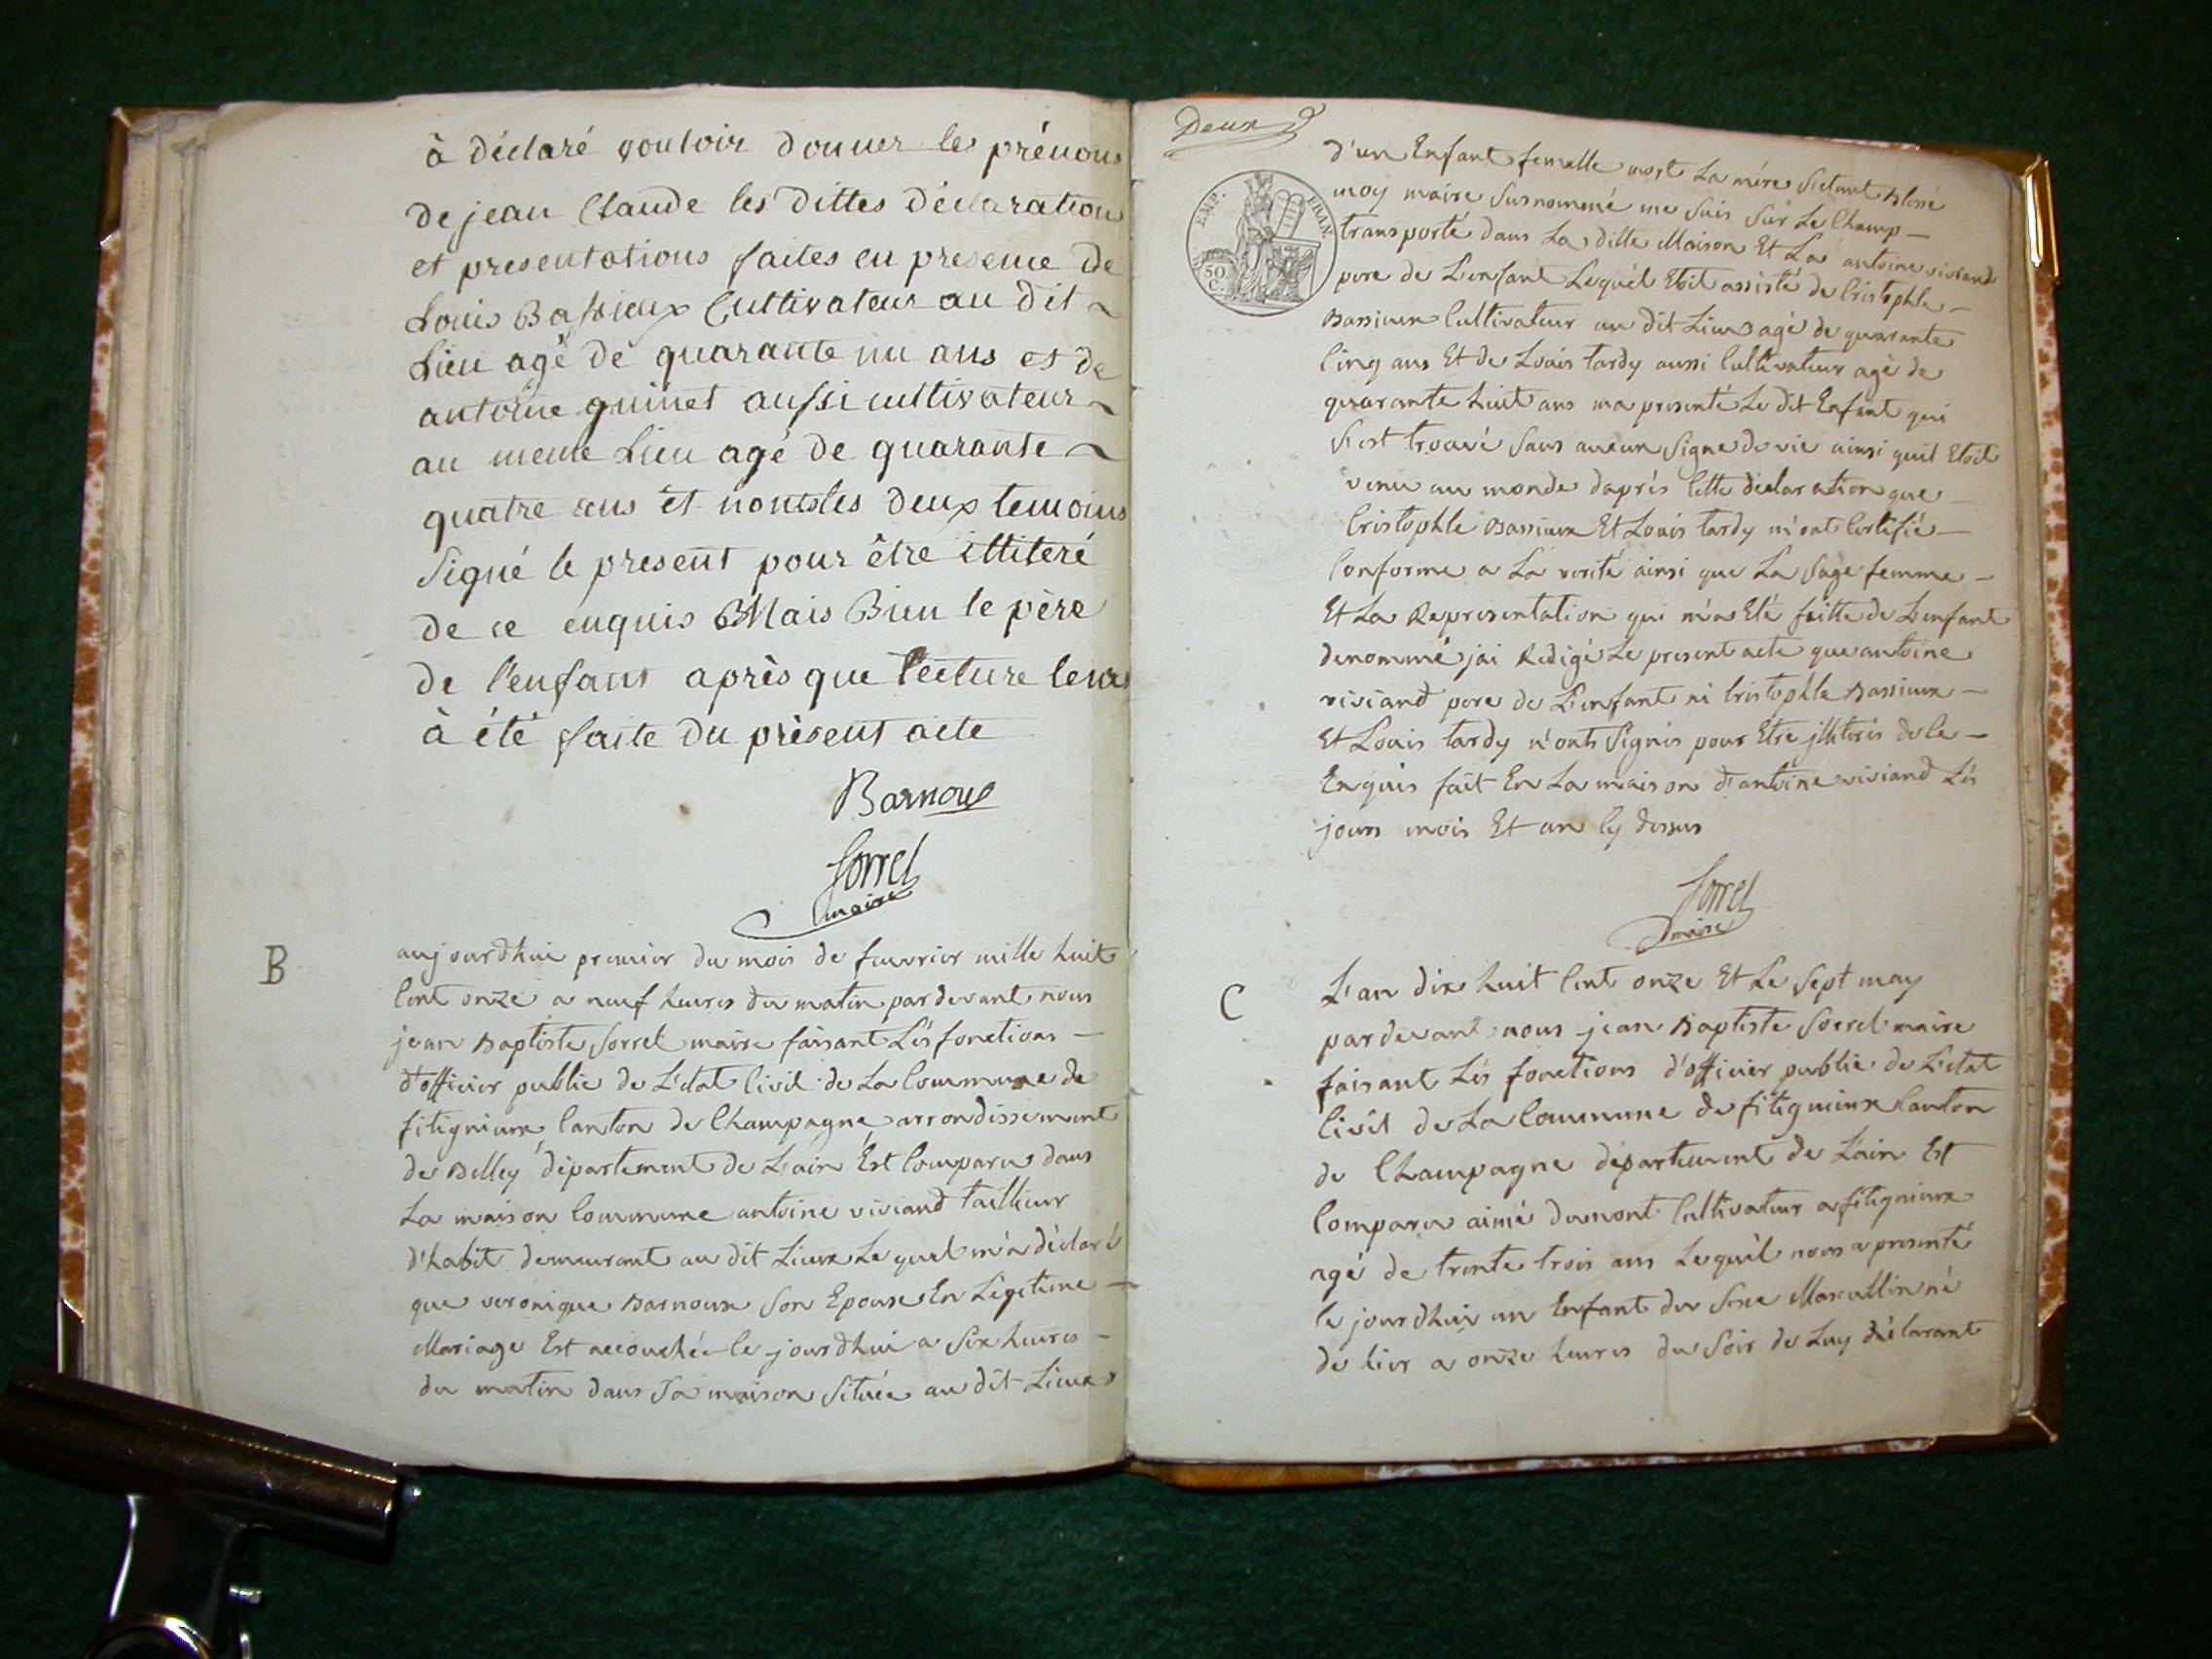 à déclaré vouloir donner les prénoms
de jean Claude les dittes déclarations
et presentations faites en presence de
Louis Bassieux Cultivateur au dit
Lieu agé de quarante un ans et de
antoine guinet aussi cultivateur
au meme Lieu agé de quarante
quatre ans et nont les deux temoins
Signé le present pour être illiteré
de ce enquis Mais Bien le père
de l'enfans après que lecture leur
à été faite du présent acte
Barnoux
Sorrel
maire
B
aujourdhui premier du mois de fevrier mille huit
Cent onze a neuf heures du matin pardevant nous
jean Baptiste Sorrel maire faisant Lés fonctions
d'officier public de L'état Civil de La Commune de
fitignieux Canton de Champagne arrondissement
de Belley département de L'ain Est Comparu dans
La maison Commune antoine viviand tailleur
d'habit demeurant au dit Lieux Le quel m'a déclaré
que veronique Barnoux Son Epouse En Légitime
Mariage Est accouchée Ce jourdhui a Six heures
du matin dans Sa maison Située au dit Lieux
Deux
EMP. FRAN.
50 C.
d'un Enfant femelle mort La mére S'etant Blesé
moy maire Susnommé me Suis Sur Le Champ
transporté dans La ditte Maison Et La antoine viviand
pere de L'enfant Lequél Etoit assisté de Cristophle
Bassieux Cultivateur au dit Lieux agé de quarante
Cinq ans Et de Louis tardy aussi Cultivateur agé de
quarante huit ans ma presenté Le dit Enfant qui
S'est trouvé Sans aucun Signe de vie ainsi quil Etoit
venu au monde daprés Cette déclaration que
Cristophle Bassieux Et Louis tardy m'ont Certifié
Conforme a La verité ainsi que La Sage femme
Et La Representation qui m'a Eté faitte de L'enfant
denommé jai Redigé Le present acte que antoine
viviand pere de L'enfant ni Cristophle Bassieux
Et Louis tardy n'ont Signés pour Etre jllitérés de Ce
Enquis fait En La maison d'antoine viviand Lés
jours mois Et an Cy dessus
Sorrel
maire
C
L'an dix huit Cent onze Et Le Sept may
pardevant nous jean Baptiste Sorrel maire
faisant Lés fonctions d'officier public de L'etat
Civil de La Commune de fitignieux Canton
de Champagne département de L'ain Est
Comparu aimé dumont Cultivateur a fitignieux
agé de trente trois ans Lequél nous a presenté
Ce jourdhui un Enfant du Sexe Masculin né
de hier a onze heures du Soir de Luy déclarant